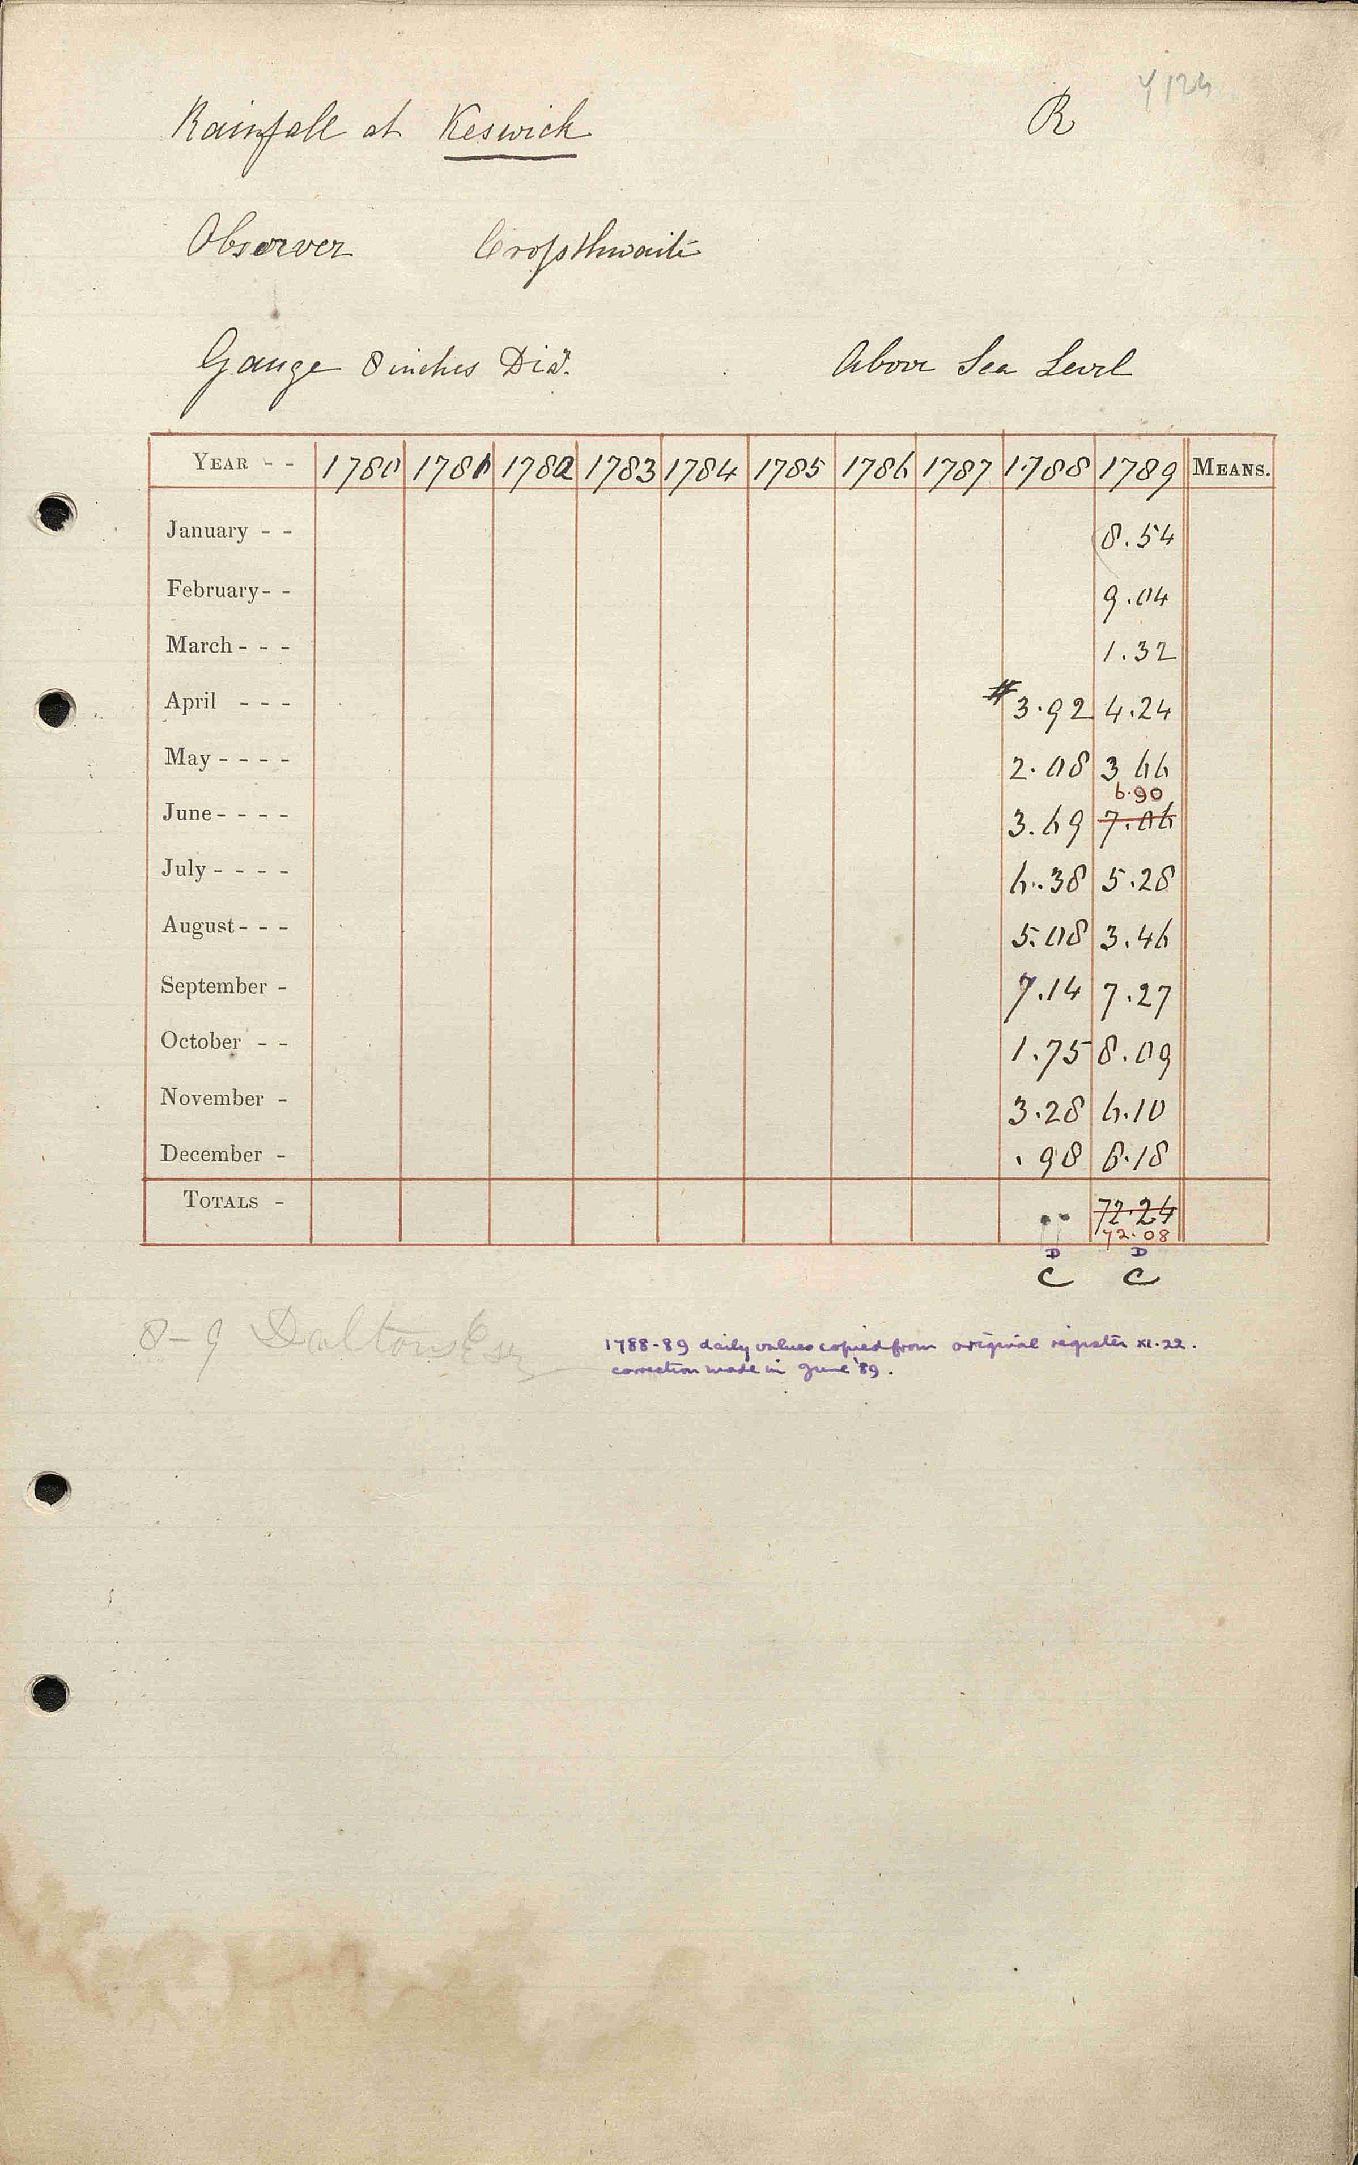 Y124
Rainfall at Keswick R
Observer Crofsthwaite
Gauge 8 inches Dia. Above Sea Level
YEAR - - 1780 1781 1782 1783 1784 1785 1786 1787 1788 1789 MEANS.
January - - 8.54
February - - 9.04
March - - - 1.32
April - - - # 3.92 4.24
May - - - - 2.08 3 66
6.90
June - - - - 3.69 7.06
July - - - - 6.38 5.28
August - - - 5.08 3.46
September - 7.14 7.27
October - - 1.75 8.09
November - 3.28 6.10
December - .98 8.18
TOTALS - .. 72.24
72.08
D D
C C
8-9 Daltons Esq
1788-89 daily values copied from original register XI.22.
correction made in June '89.